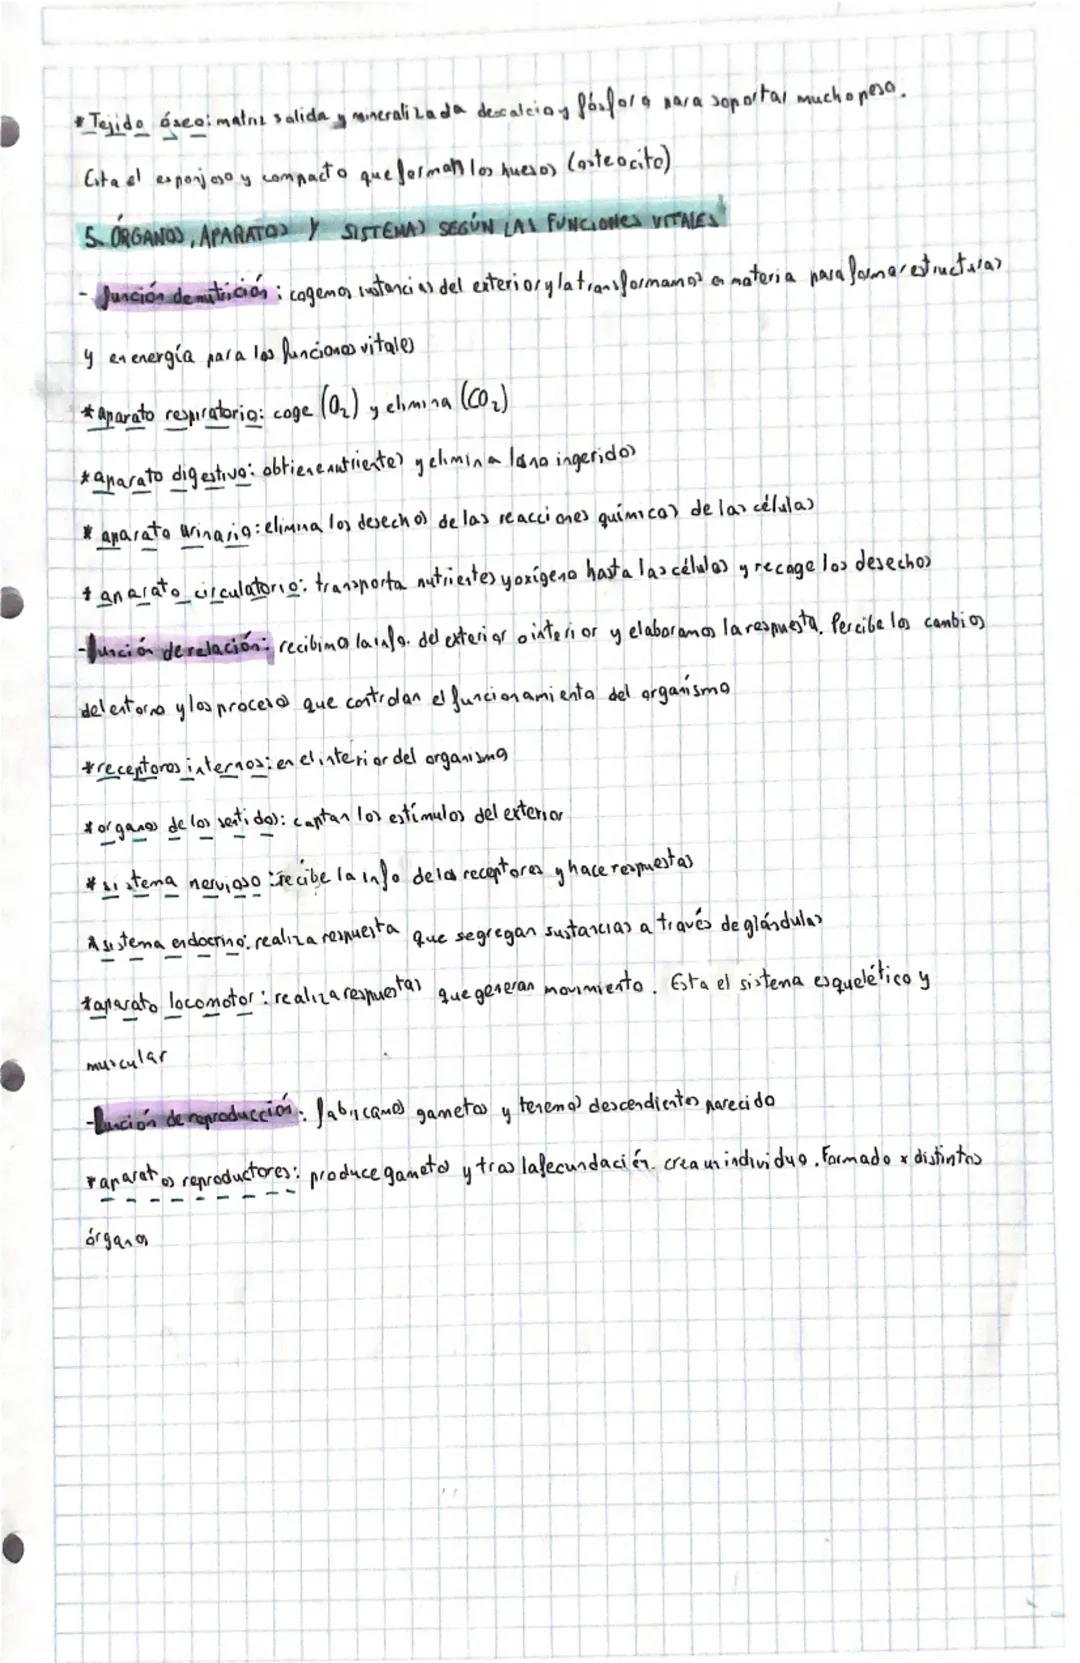 * Tejido óseo: matriz solida y mineralizada de calcio y fósforo para soportar mucho peso.
Esta el esponjoso y compacto que forman los huesos (osteocito)
5. ÓRGANOS, APARATOS Y SISTEMAS SEGÚN LAS FUNCIONES VITALES
- función de nutrición: cogemos sustancias del exterior y la transformamos en materia para formar estructuras
y en energía para las funciones vitales
* aparato respiratorio: coge (O₂) y elimina (CO₂)
* aparato digestivo: obtiene nutrientes y elimina los no ingeridos
* aparato urinario: elimina los desechos de las reacciones químicas de las células
* aparato circulatorio: transporta nutrientes y oxígeno hasta las células y recoge los desechos
- función de relación: recibimo la info. del exterior o interior y elaboramos la respuesta. Percibe los cambios
del entorno y los procesos que controlan el funcionamiento del organismo
* receptores internos: en el interior del organismo
* organos de los sentidos: captan los estímulos del exterior
* sistema nervioso: recibe la info de los receptores y hace respuestas
* sistema endocrino: realiza respuesta que segregan sustancias a través de glándulas
* aparato locomotor: realiza respuestas que generan movimiento. Esta el sistema esquelético y
muscular
- función de reproducción: fabricamos gametos y tenemos descendientes parecido
* aparatos reproductores: produce gametos y tras la fecundación. crea un individuo. Formado x distintos
órganos